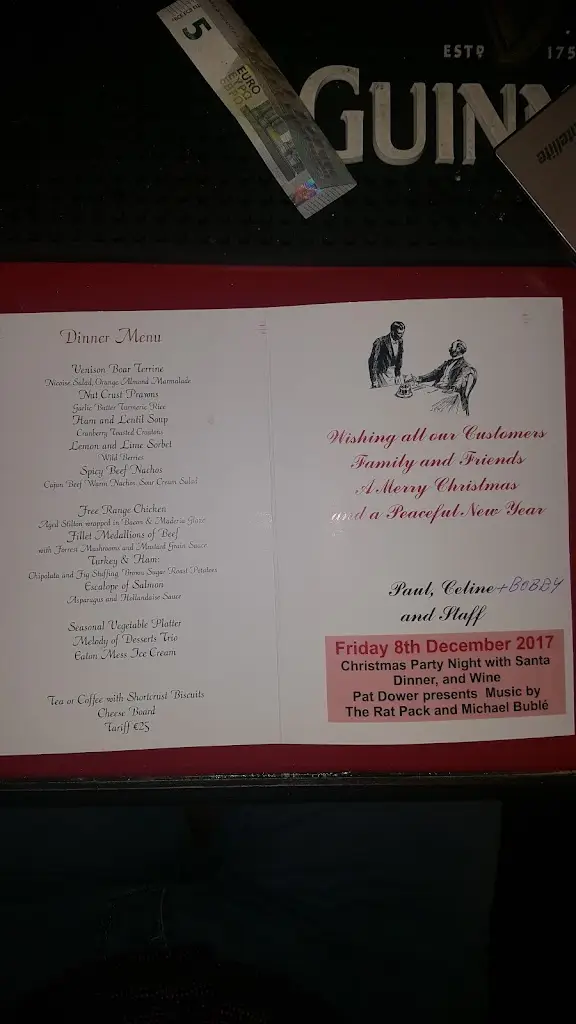 5
EURO
ΕΥΡΩ
ЕВРО
ESTD 175
GUINN
Dinner Menu
Venison Boar Terrine
Nicoise Salad, Orange Almond Marmalade
Nut Crust Prawns
Garlic Butter Turmeric Rice
Ham and Lentil Soup
Cranberry Toasted Croutons
Lemon and Lime Sorbet
Wild Berries
Spicy Beef Nachos
Cajun Beef Warm Nachos Sour Cream Salad
Free Range Chicken
Aged Stilton wrapped in Bacon & Maderia Glaze
Fillet Medallions of Beef
with Forrest Mushrooms and Mustard Grain Sauce
Turkey & Ham:
Chipolata and Fig Stuffing Brown Sugar Roast Potatoes
Escalope of Salmon
Asparagus and Hollandaise Sauce
Seasonal Vegetable Platter
Melody of Desserts Trio
Eaton Mess Ice Cream
Tea or Coffee with Shortcrust Biscuits
Cheese Board
Tariff €25
Wishing all our Customers
Family and Friends
A Merry Christmas
and a Peaceful New Year
Paul, Celine + BOBBY
and Staff
Friday 8th December 2017
Christmas Party Night with Santa
Dinner, and Wine
Pat Dower presents Music by
The Rat Pack and Michael Bublé